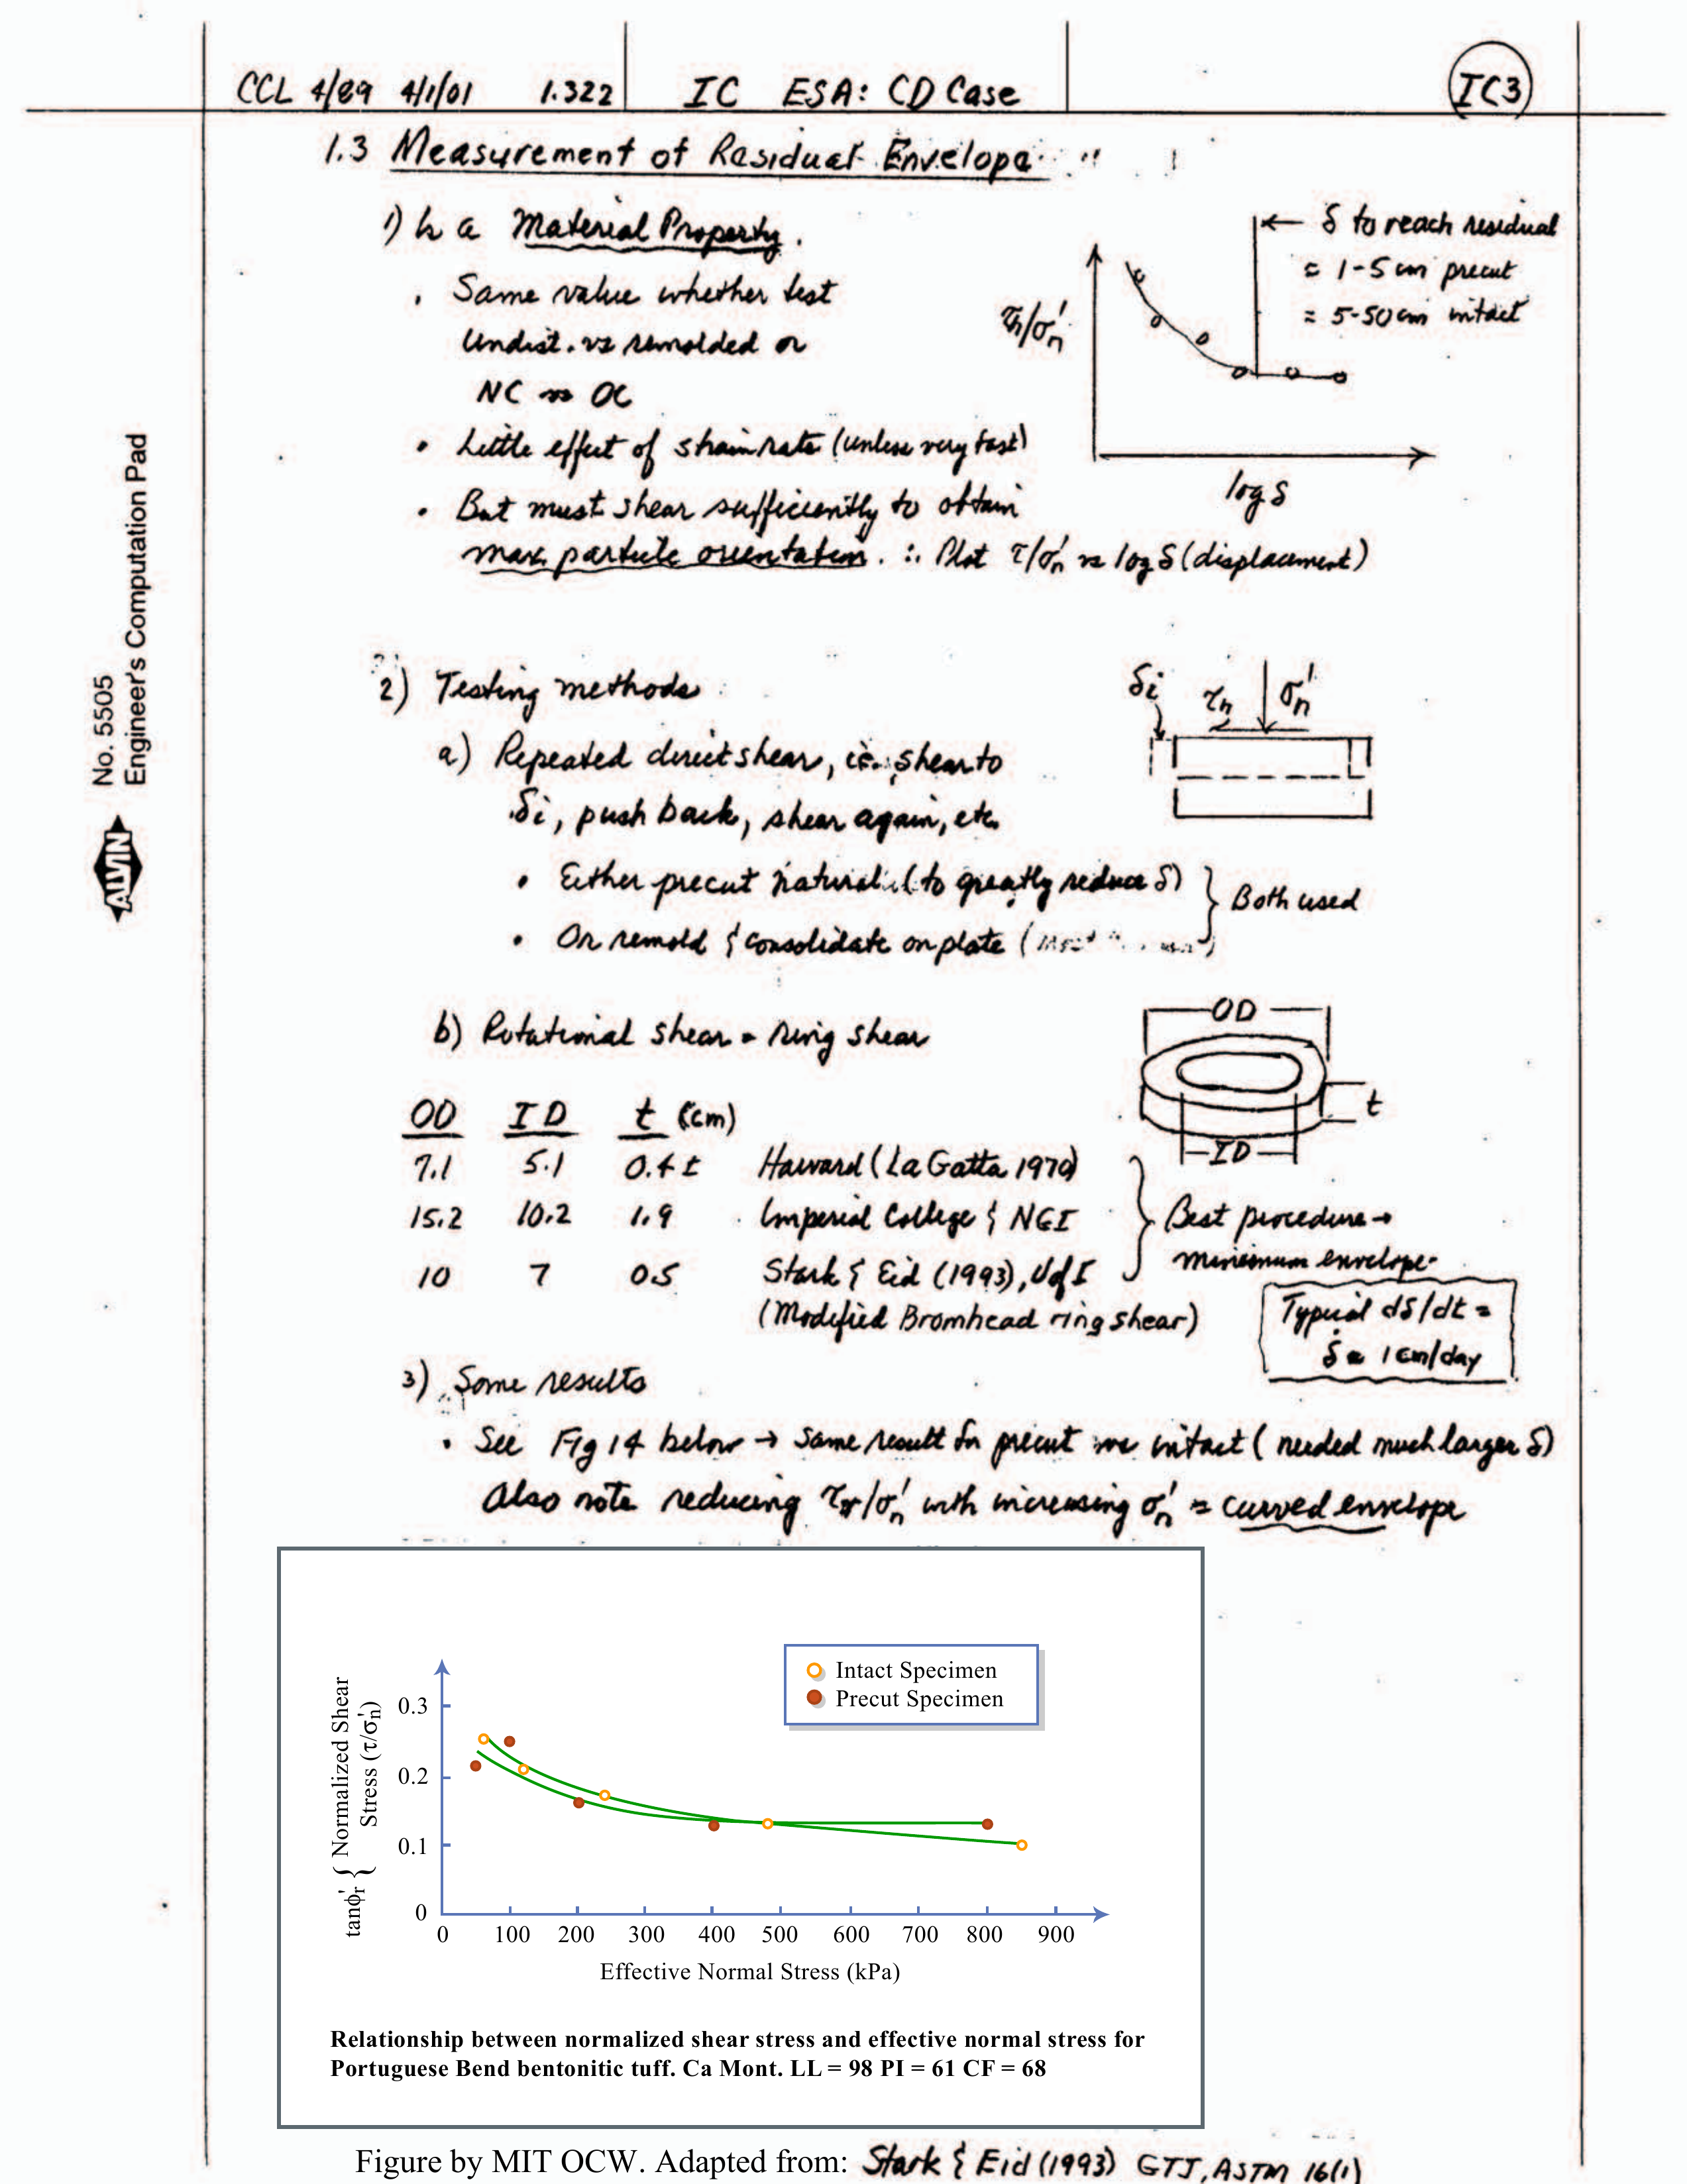 CCL 4/89 4/1/01 1.322 IC ESA: CD Case IC3
1.3 Measurement of Residual Envelope
1) Is a Material Property.
• Same value whether test
Undist. vs remolded or
NC vs OC
• Little effect of strain rate (unless very fast)
• But must shear sufficiently to obtain
max. particle orientation. ∴ Plot τ/σ'n vs log δ (displacement)
← δ to reach residual
= 1-5 cm precut
= 5-50 cm intact
τh/σ'n
log δ
2) Testing methods
a) Repeated direct shear, i.e., shear to
δi, push back, shear again, etc.
• Either precut natural (to greatly reduce δ)
• Or remold & consolidate on plate (
} Both used
δi τh σ'n
b) Rotational shear = ring shear
OD
t
ID
OD ID t (cm)
7.1 5.1 0.4± Harvard (La Gatta 1970)
15.2 10.2 1.9 Imperial College & NGI
10 7 0.5 Stark & Eid (1993), U of I
(Modified Bromhead ring shear)
} Best procedure →
minimum envelope
Typical dδ/dt =
δ̇ ≈ 1 cm/day
3) Some results
• See Fig 14 below → same result for precut vs intact (needed much larger δ)
Also note reducing τr/σ'n with increasing σ'n = curved envelope
Intact Specimen
Precut Specimen
tanϕr' { Normalized Shear
Stress (τ/σn')
0.3
0.2
0.1
0
0 100 200 300 400 500 600 700 800 900
Effective Normal Stress (kPa)
Relationship between normalized shear stress and effective normal stress for
Portuguese Bend bentonitic tuff. Ca Mont. LL = 98 PI = 61 CF = 68
Figure by MIT OCW. Adapted from: Stark & Eid (1993) GTJ, ASTM 16(1)
No. 5505
Engineer's Computation Pad
ALVIN